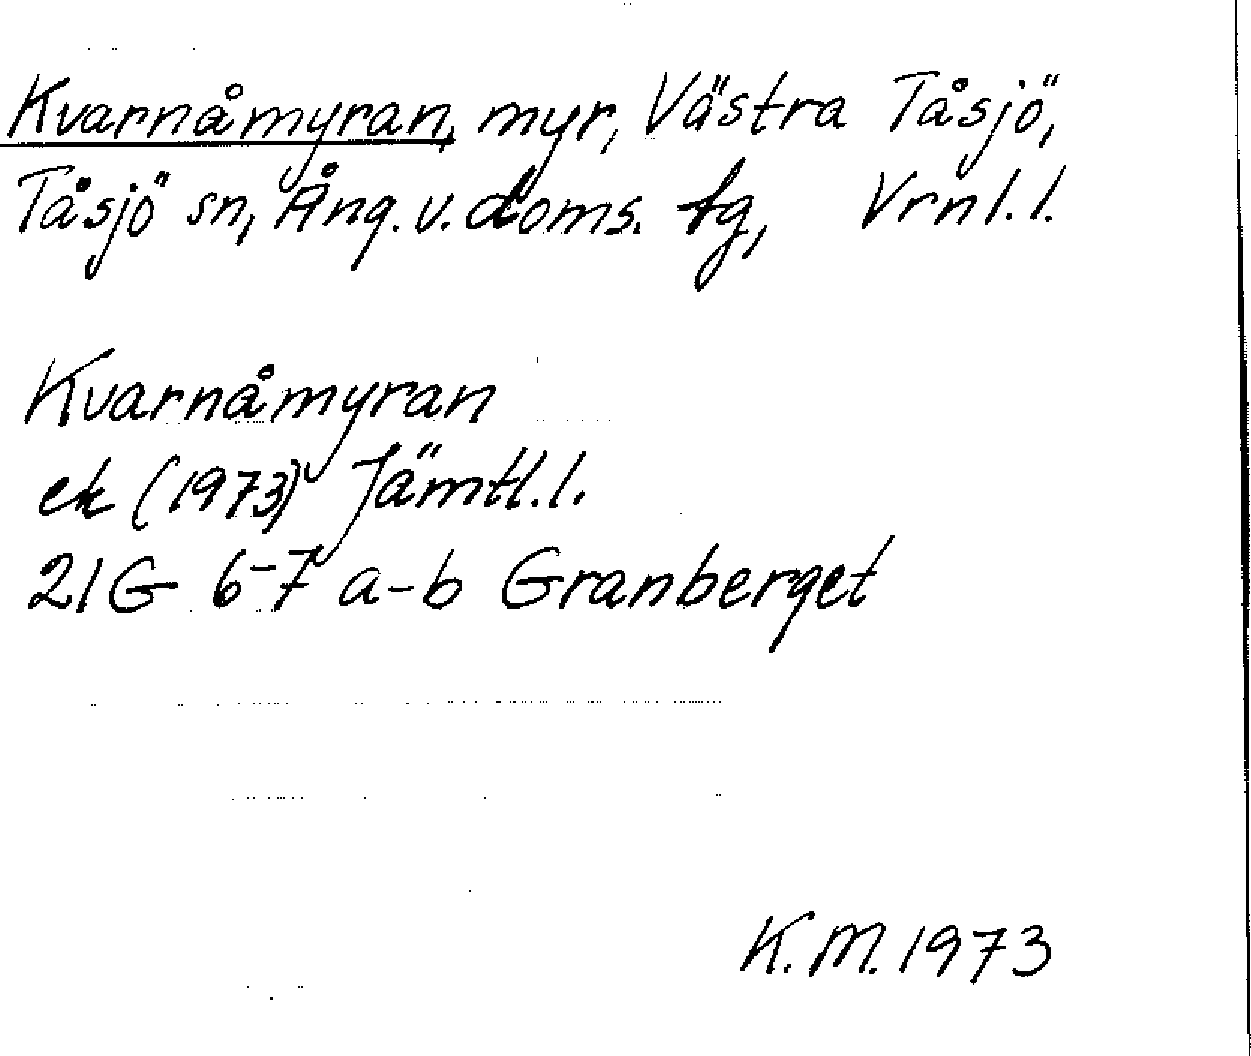 Kvarnåmyran, myr, Västra Tåsjö,
Tåsjö sn, Ång. v. doms. tg, Vrnl. l.
Kvarnåmyran
ek (1973) Jämtl. l.
21G 6-7 a-b Granberget
K.M. 1973